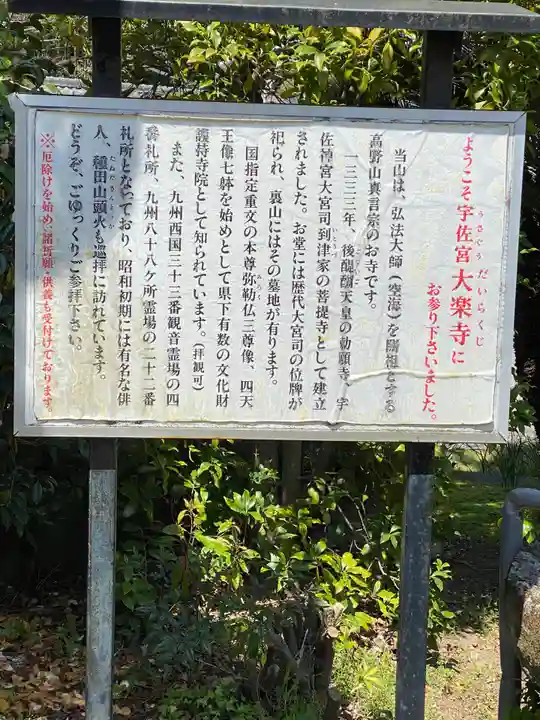 ようこそ宇佐宮大楽寺に
うさぐうだいらくじ
お参り下さいました。
当山は、弘法大師（空海）を開祖とする
高野山真言宗のお寺です。
一三三三年、後醍醐天皇の勅願寺、宇
佐神宮大宮司到津家の菩提寺として建立
されました。お堂には歴代大宮司の位牌が
祀られ、裏山にはその墓地が有ります。
国指定重文の本尊弥勒仏三尊像、四天
みろく
王像七躰を始めとして県下有数の文化財
護持寺院として知られています。（拝観可）
また、九州西国三十三番観音霊場の四
番札所、九州八十八ケ所霊場の二十二番
札所となっており、昭和初期には有名な俳
人、種田山頭火も巡拝に訪れています。
たねださんとうか
どうぞ、ごゆっくりご参拝下さい。
※厄除けを始め、諸祈願・供養も受付けております。